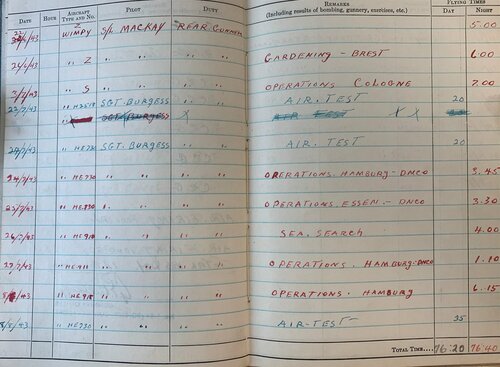 DATE HOUR AIRCRAFT TYPE AND NO. PILOT DUTY REMARKS (Including results of bombing, gunnery, exercises, etc.) FLYING TIMES DAY NIGHT
22/6/43 WIMPY S/L MACKAY REAR GUNNER 5.00
24/6/43 " Z GARDENING - BREST 6.00
3/7/43 " S OPERATIONS COLOGNE 7.00
22/7/43 " SGT. BURGESS AIR. TEST 20
" SGT BURGESS X AIR TEST X X
24/7/43 " HE730 SGT. BURGESS AIR. TEST 20
24/7/43 " HE730 " " OPERATIONS. HAMBURG - DNCO 3.45
25/7/43 " " OPERATIONS. ESSEN. - DNCO 3.30
26/7/43 " HE918 " " SEA. SEARCH 4.00
29/7/43 " " " OPERATIONS. HAMBURG - DNCO 1.10
/43 " HE918 " " OPERATIONS. HAMBURG 6.15
/8/43 " HE730 " " AIR-TEST 35
TOTAL TIME.... 76:20 76:40